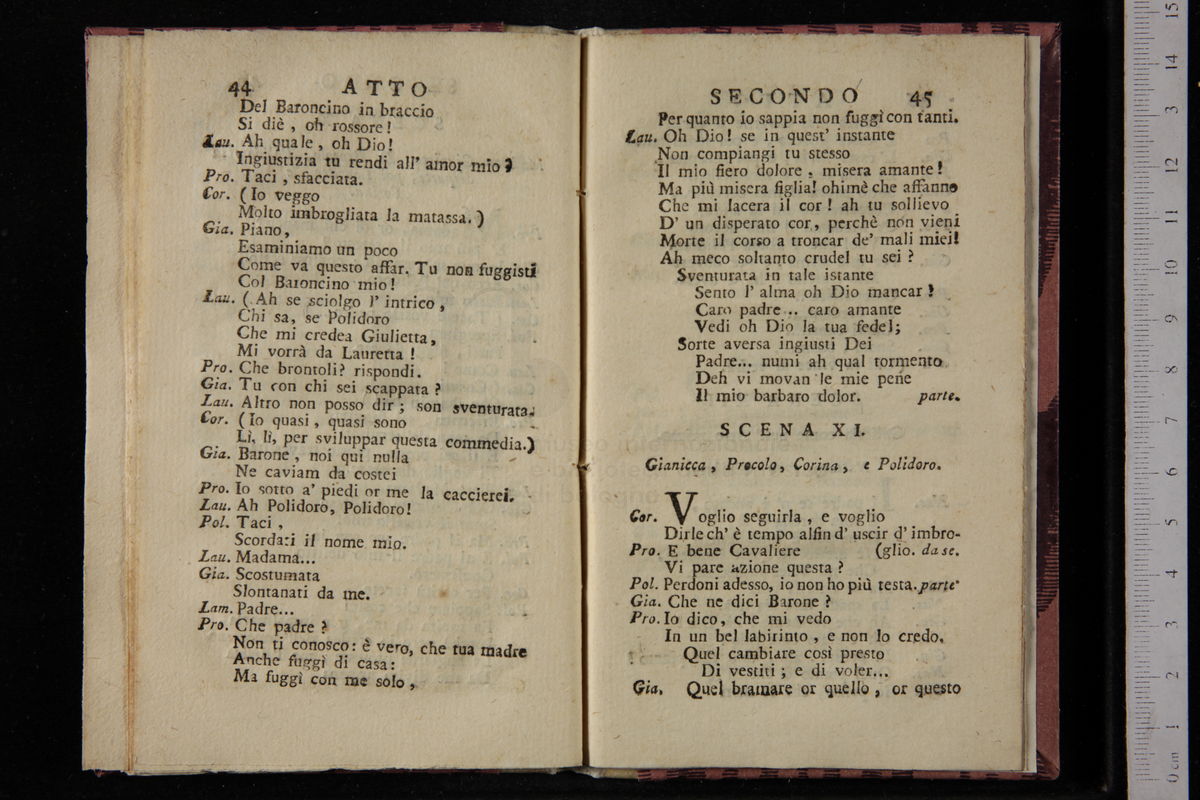 44 ATTO
Del Baroncino in braccio
Si diè , oh rossore !
Lau. Ah quale , oh Dio!
Ingiustizia tu rendi all' amor mio ?
Pro. Taci , sfacciata.
Cor. ( Io veggo
Molto imbrogliata la matassa. )
Gia. Piano,
Esaminiamo un poco
Come va questo affar. Tu non fuggisti
Col Baroncino mio !
Lau. ( Ah se sciolgo l' intrico ,
Chi sa, se Polidoro
Che mi credea Giulietta,
Mi vorrà da Lauretta !
Pro. Che brontoli? rispondi.
Gia. Tu con chi sei scappata ?
Lau. Altro non posso dir ; son sventurata.
Cor. ( Io quasi, quasi sono
Lì, lì, per sviluppar questa commedia.)
Gia. Barone , noi qui nulla
Ne caviam da costei
Pro. Io sotto a' piedi or me la caccierei.
Lau. Ah Polidoro, Polidoro!
Pol. Taci ,
Scordati il nome mio.
Lau. Madama...
Gia. Scostumata
Slontanati da me.
Lam. Padre...
Pro. Che padre ?
Non ti conosco: è vero, che tua madre
Anche fuggì di casa:
Ma fuggì con me solo ,
SECONDO 45
Per quanto io sappia non fuggì con tanti.
Lau. Oh Dio! se in quest' instante
Non compiangi tu stesso
Il mio fiero dolore , misera amante !
Ma più misera figlia! ohimè che affanno
Che mi lacera il cor ! ah tu sollievo
D' un disperato cor , perchè non vieni
Morte il corso a troncar de' mali miei!
Ah meco soltanto crudel tu sei ?
Sventurata in tale istante
Sento l' alma oh Dio mancar !
Caro padre .. caro amante
Vedi oh Dio la tua fedel;
Sorte aversa ingiusti Dei
Padre... numi ah qual tormento
Deh vi movan le mie pene
Il mio barbaro dolor. parte.
SCENA XI.
Gianicca , Procolo, Corina , e Polidoro.
Cor. Voglio seguirla , e voglio
Dirle ch' è tempo alfin d' uscir d' imbro-
Pro. E bene Cavaliere (glio. da se.
Vi pare azione questa ?
Pol. Perdoni adesso, io non ho più testa. parte
Gia. Che ne dici Barone ?
Pro. Io dico, che mi vedo
In un bel labirinto , e non lo credo.
Quel cambiare così presto
Di vestiti ; e di voler...
Gia. Quel bramare or quello , or questo